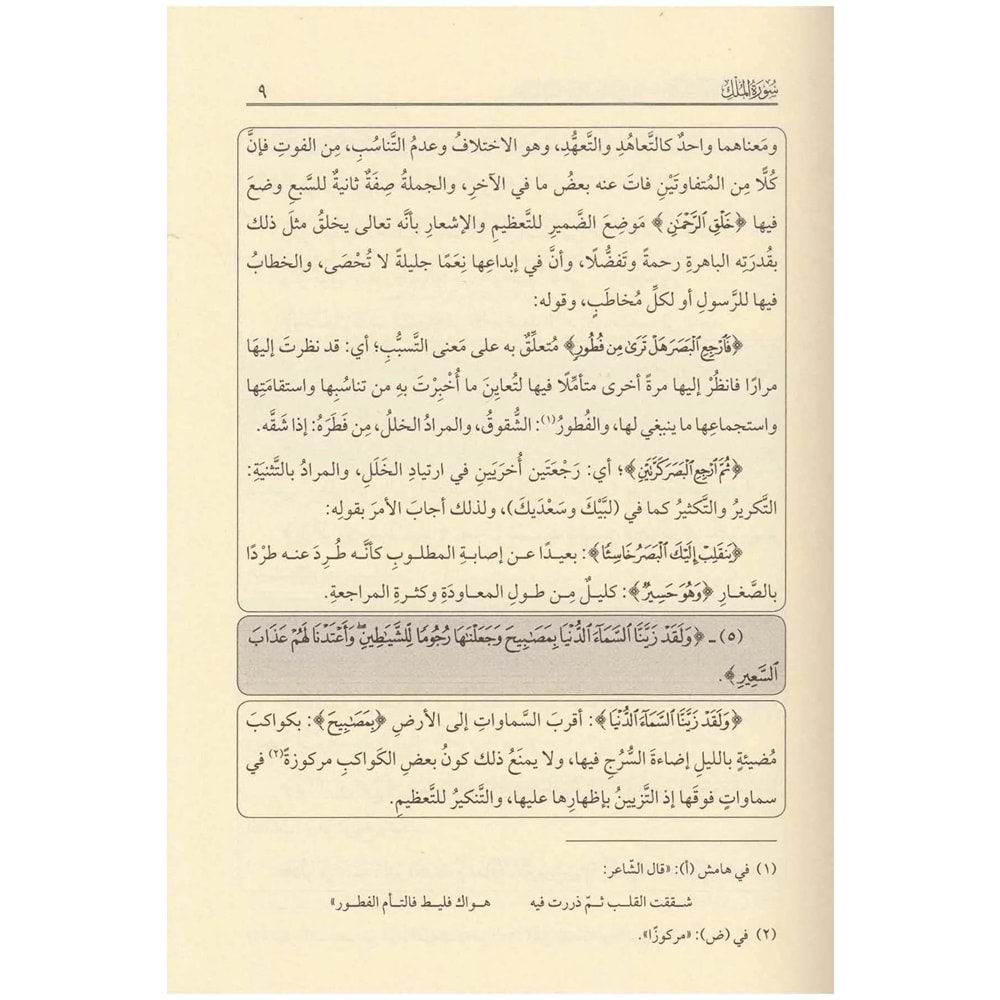 سُورَةُ المُلْكِ ٩
ومَعناهما واحدٌ كالتَّعاهُدِ والتَّعهُّدِ، وهو الاختلافُ وعدمُ التَّناسُبِ، مِن الفوتِ فإنَّ
كُلًّا مِن المُتفاوتَيْنِ فاتَ عنه بعضُ ما في الآخرِ، والجملةُ صِفَةٌ ثانيةٌ للسَّبعِ وضعَ
فيها ﴿خَلْقِ ٱلرَّحْمَٰنِ﴾ مَوضِعَ الضَّميرِ للتَّعظيمِ والإشعارِ بأنَّه تعالى يخلقُ مثلَ ذلك
بقُدرَتِه الباهرةِ رحمةً وتَفضُّلًا، وأنَّ في إبداعِها نِعَمًا جليلةً لا تُحْصَى، والخطابُ
فيها للرَّسولِ أو لكلِّ مُخاطَبٍ، وقوله:
﴿فَٱرْجِعِ ٱلْبَصَرَ هَلْ تَرَىٰ مِن فُطُورٍ﴾ مُتعلِّقٌ به على مَعنى التَّسبُّبِ؛ أي: قد نظرتَ إليهَا
مرارًا فانظُرْ إليها مرةً أخرى متأمِّلًا فيها لتُعاينَ ما أُخْبِرْتَ بهِ من تناسُبِها واستقامَتِها
واستجماعِها ما ينبغي لها، والفُطورُ(١): الشُّقوقُ، والمرادُ الخللُ، مِن فَطَرَهُ: إذا شقَّه.
﴿ثُمَّ ٱرْجِعِ ٱلْبَصَرَ كَرَّتَيْنِ﴾؛ أي: رَجْعَتَين أُخرَيَينِ في ارتيادِ الخَلَلِ، والمرادُ بالتَّثنيَةِ:
التَّكريرُ والتَّكثيرُ كما في (لبَّيْكَ وسَعْدَيكَ)، ولذلك أجابَ الأمرَ بقولِه:
﴿يَنقَلِبْ إِلَيْكَ ٱلْبَصَرُ خَاسِئًا﴾: بعيدًا عن إصابةِ المطلوبِ كأنَّه طُرِدَ عنه طرْدًا
بالصَّغارِ ﴿وَهُوَ حَسِيرٌ﴾: كليلٌ مِن طولِ المعاودَةِ وكثرةِ المراجعةِ.
(٥) ـ ﴿وَلَقَدْ زَيَّنَّا ٱلسَّمَآءَ ٱلدُّنْيَا بِمَصَٰبِيحَ وَجَعَلْنَٰهَا رُجُومًا لِّلشَّيَٰطِينِ ۖ وَأَعْتَدْنَا لَهُمْ عَذَابَ
ٱلسَّعِيرِ﴾.
﴿وَلَقَدْ زَيَّنَّا ٱلسَّمَآءَ ٱلدُّنْيَا﴾: أقربَ السَّماواتِ إلى الأرضِ ﴿بِمَصَٰبِيحَ﴾: بكواكبَ
مُضيئةٍ بالليلِ إضاءةَ السُّرُجِ فيها، ولا يمنَعُ ذلك كونُ بعضِ الكَواكبِ مركوزةً(٢) في
سماواتٍ فوقَها إذ التَّزيينُ بإظهارِها عليها، والتَّنكيرُ للتَّعظيمِ.
(١) في هامش (أ): «قال الشّاعر:
شققت القلب ثمّ ذررت فيه هواك فليط فالتأم الفطور»
(٢) في (ض): «مركوزًا».